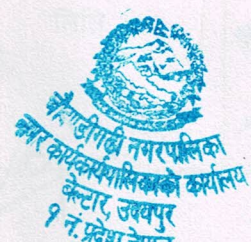 चौदण्डीगढी नगरपालिका
नगर कार्यपालिकाको कार्यालय
बेल्टार, उदयपुर
१ नं. प्रदेश नेपाल